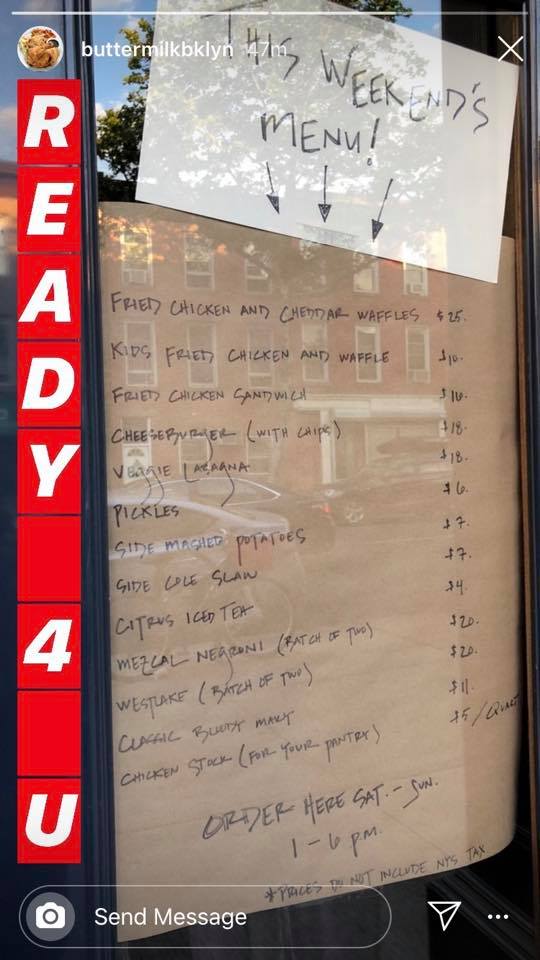 buttermilkbklyn 47m
READY 4 U
THIS WEEKEND'S
MENU!
FRIED CHICKEN AND CHEDDAR WAFFLES $25.
KIDS FRIED CHICKEN AND WAFFLE $10.
FRIED CHICKEN SANDWICH $16.
CHEESEBURGER (WITH CHIPS) $18.
VEGGIE LASAGNA $18.
PICKLES $6.
SIDE MASHED POTATOES $7.
SIDE COLE SLAW $7.
CITRUS ICED TEA $4
MEZCAL NEGRONI (BATCH OF TWO) $20.
WESTLAKE (BATCH OF TWO) $20.
CLASSIC BLOODY MARY $11.
CHICKEN STOCK (FOR YOUR PANTRY) $5/QUART
ORDER HERE SAT. - SUN.
1 - 6 P.M.
*PRICES DO NOT INCLUDE NYS TAX
Send Message